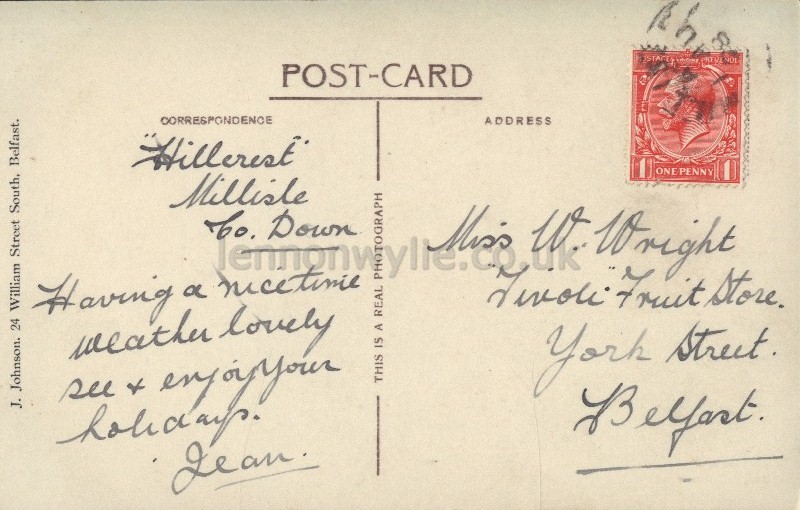 POST-CARD
CORRESPONDENCE
"Hillcrest"
Millisle
Co. Down
Having a nice time
weather lovely
see & enjoy your
holidays.
Jean.
THIS IS A REAL PHOTOGRAPH
J. Johnson, 24 William Street South, Belfast.
ADDRESS
Miss W. Wright
"Tivoli" Fruit Store.
York Street.
Belfast.
POSTAGE REVENUE
1 ONE PENNY 1
lennonwylie.co.uk